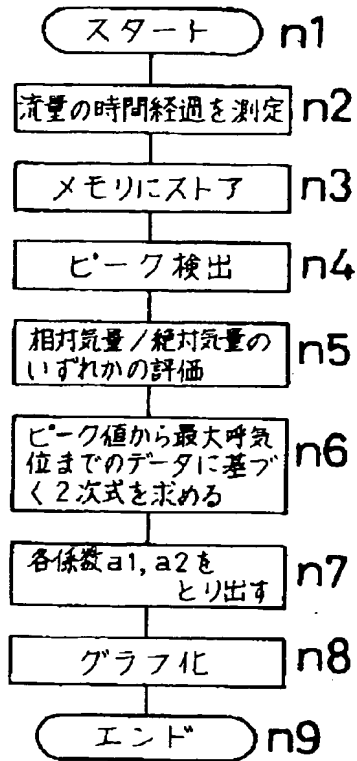 スタート n1
流量の時間経過を測定 n2
メモリにストア n3
ピーク検出 n4
相対気量/絶対気量の n5
いずれかの評価
ピーク値から最大呼気 n6
位までのデータに基づ
く2次式を求める
各係数a1,a2を n7
とり出す
グラフ化 n8
エンド n9